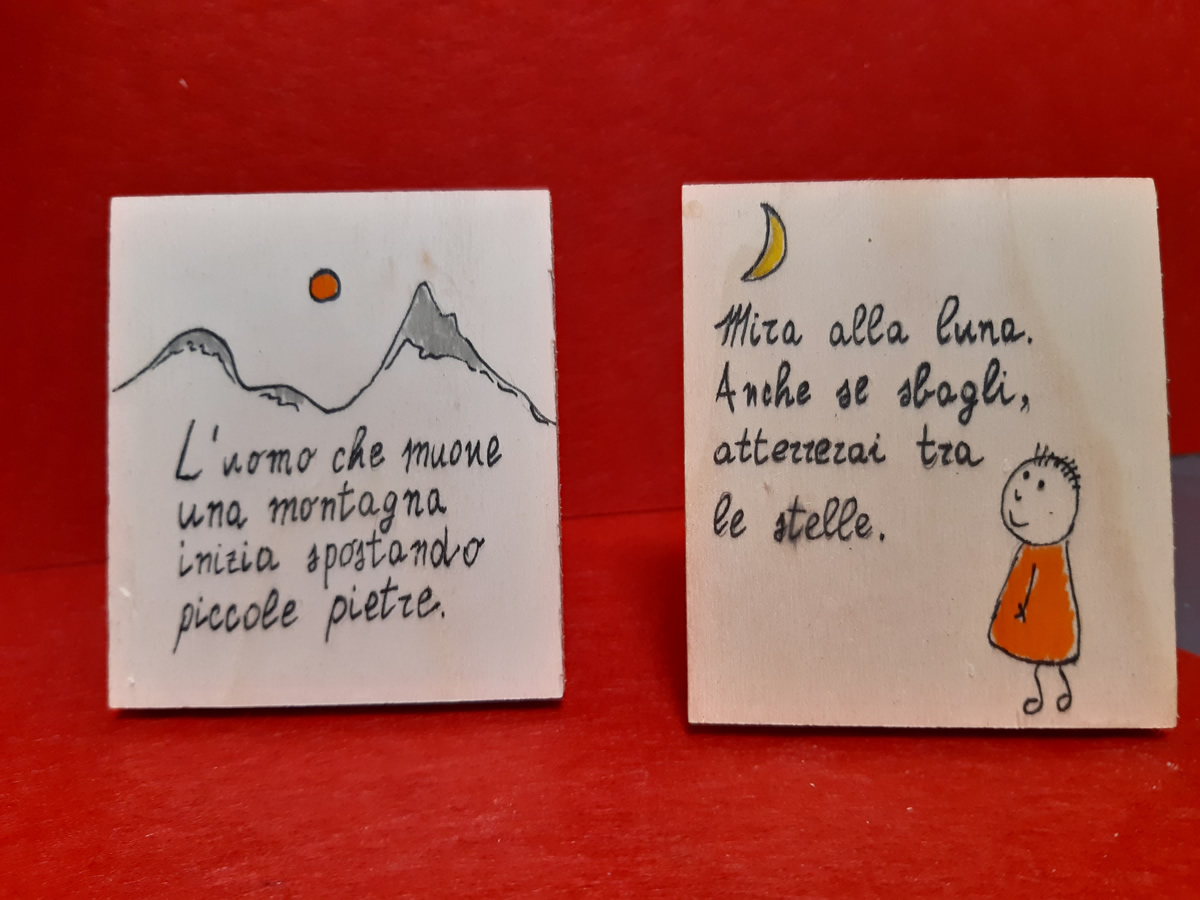 L'uomo che muove
una montagna
inizia spostando
piccole pietre.
Mira alla luna.
Anche se sbagli,
atterrerai tra
le stelle.